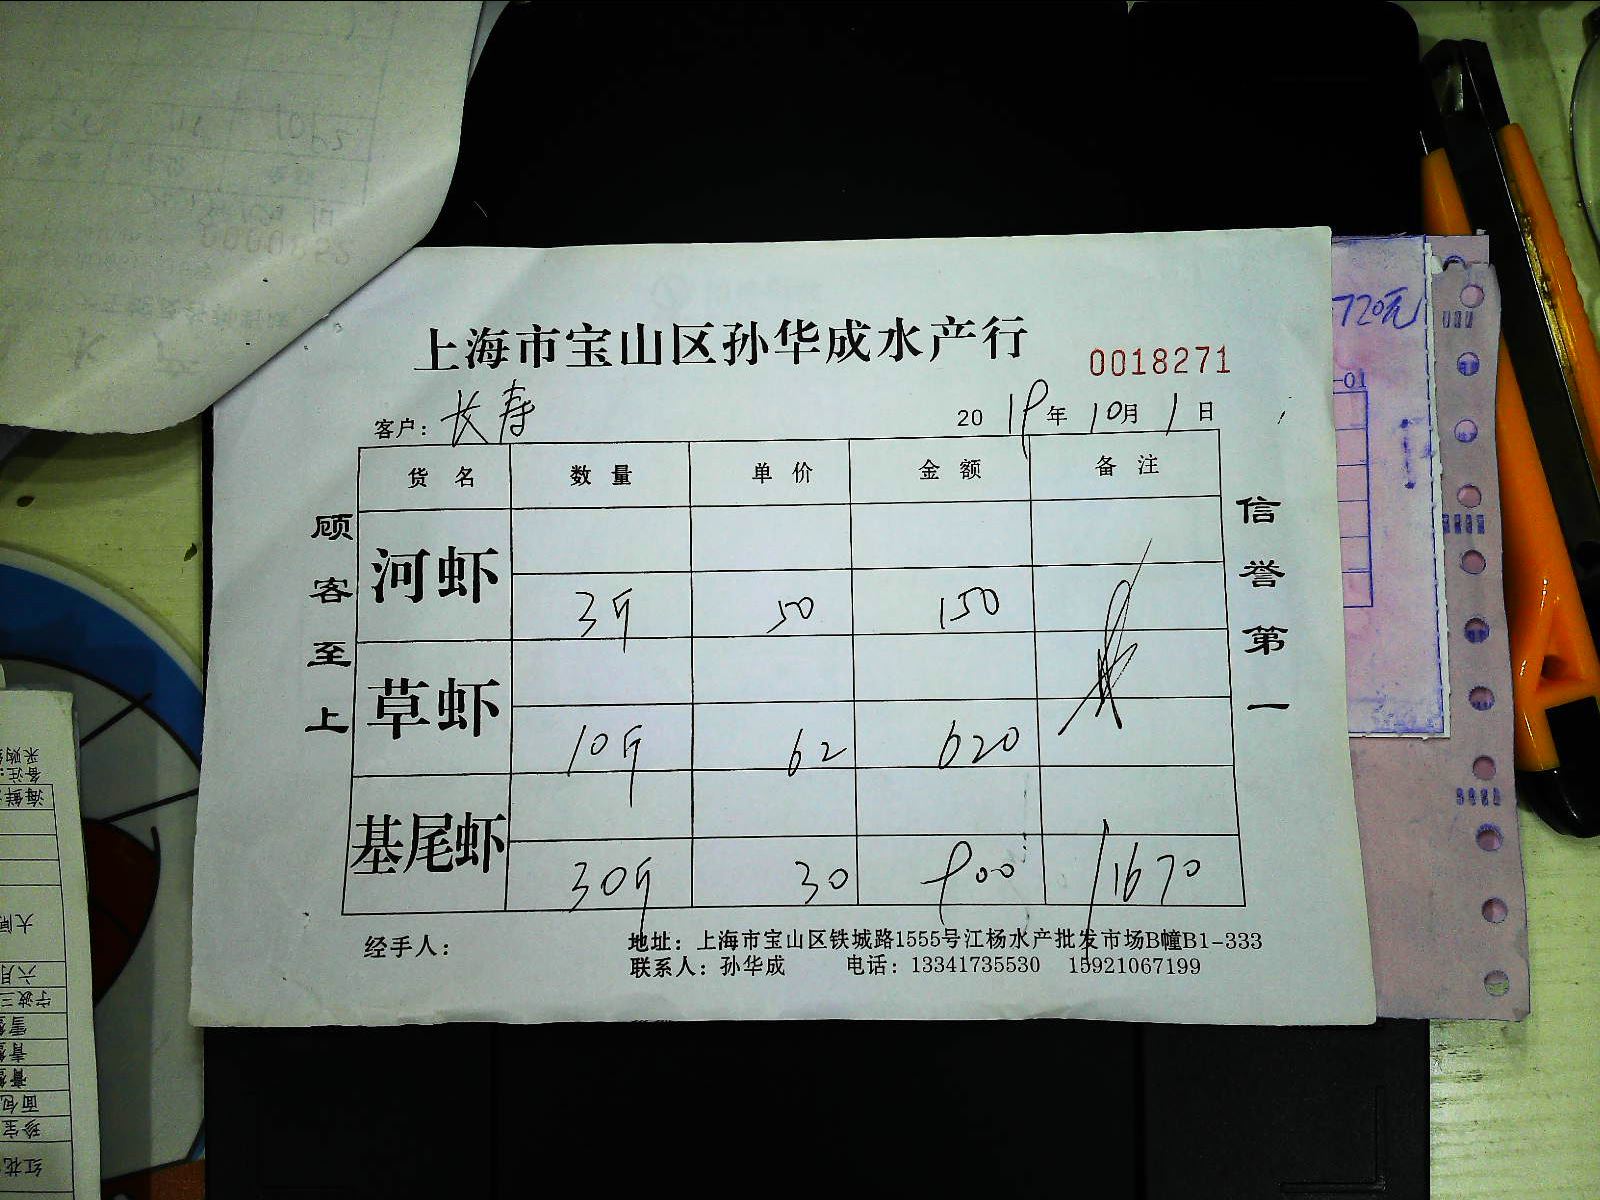 上海市宝山区孙华成水产行
0018271
客户：长寿
2019年10月1日
货名 数量 单价 金额 备注
河虾 3斤 50 150
草虾 10斤 62 620
基尾虾 30斤 30 900 1670
顾客至上
信誉第一
经手人：
地址：上海市宝山区铁城路1555号江杨水产批发市场B幢B1-333
联系人：孙华成 电话：13341735530 15921067199
720元
-01
采购
备注：
海鲜
大闸
六月
宁波三
面包
珍宝
红花